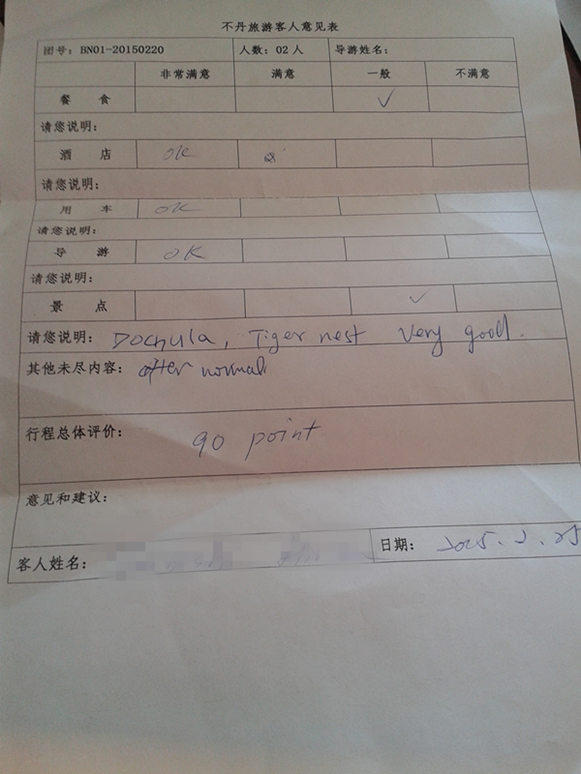 不丹旅游客人意见表
团号：BN01-20150220 人数：02 人 导游姓名：
非常满意 满意 一般 不满意
餐 食 ✓
请您说明：
酒 店 OK
请您说明：
用 车 OK
请您说明：
导 游 OK
请您说明：
景 点 ✓
请您说明：Dochula, Tiger nest Very good.
其他未尽内容：other normal
行程总体评价：90 point
意见和建议：
客人姓名： 日期：